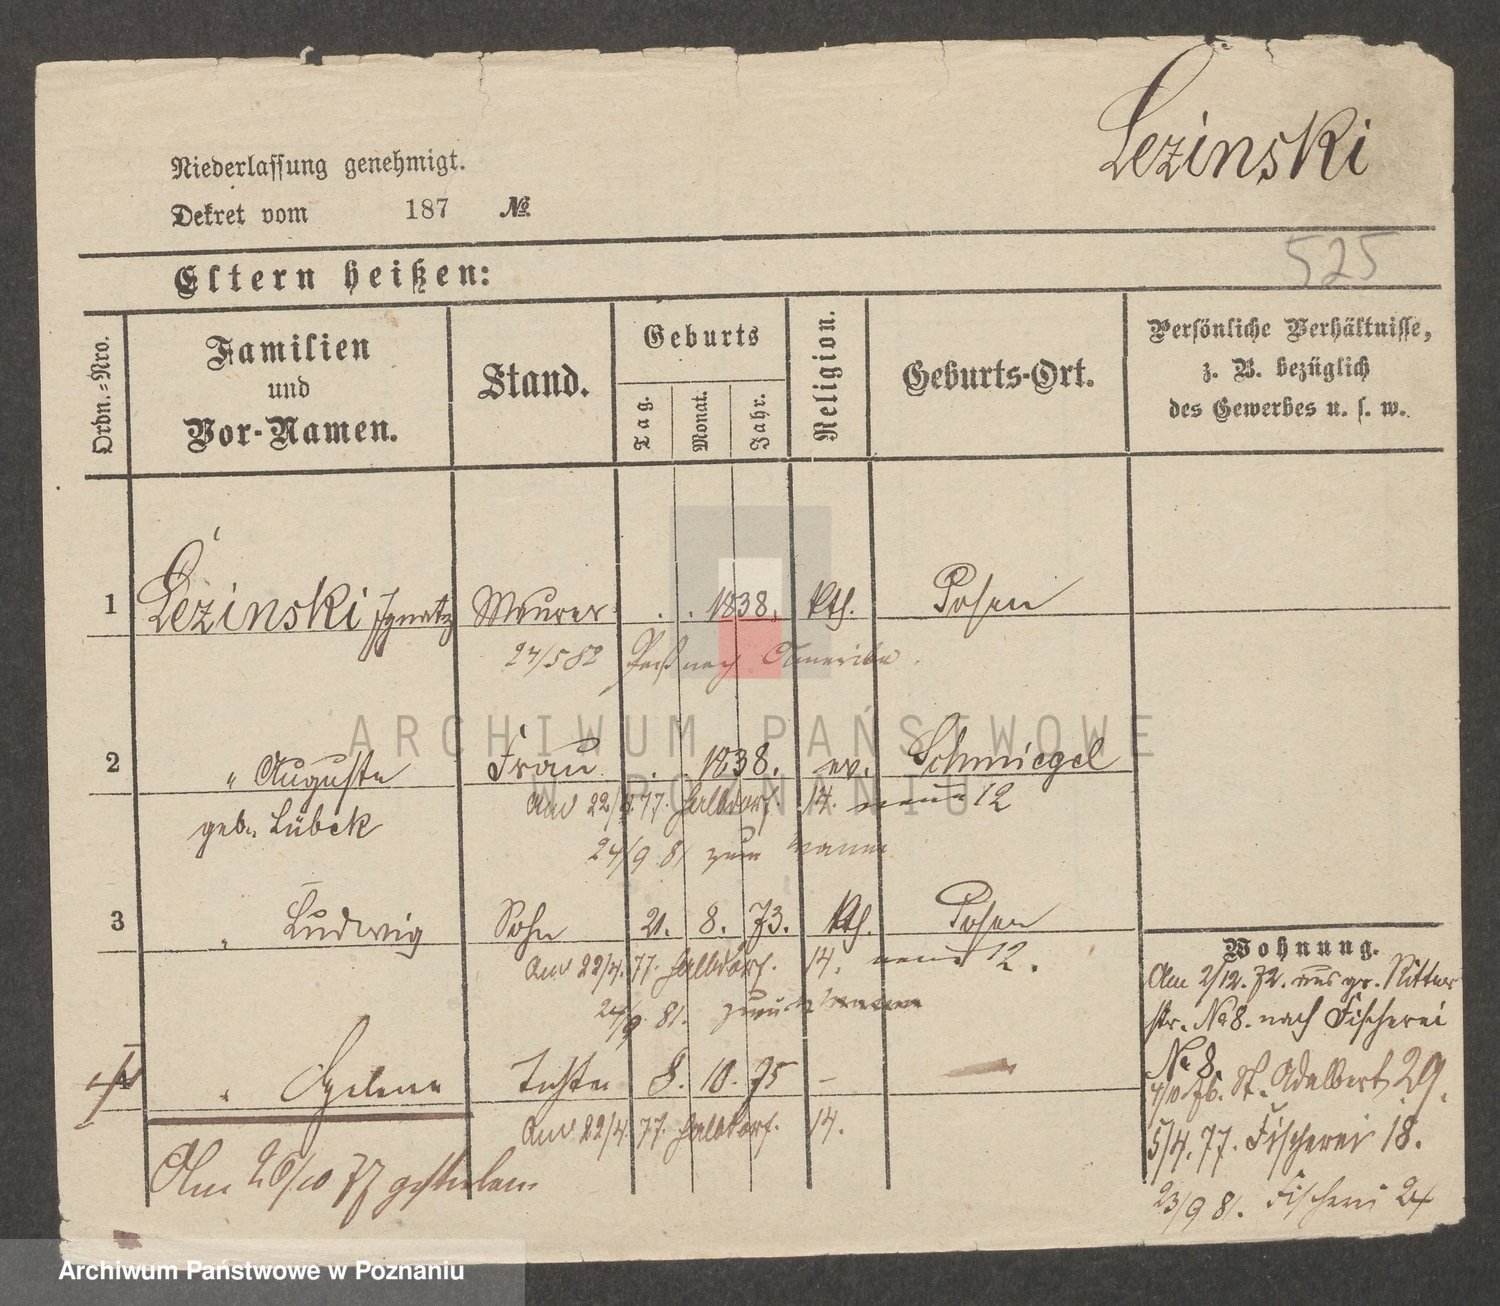 Lezinski
Niederlassung genehmigt.
Dekret vom 187 №
525
Eltern heißen:
Ordn.-Nro.
Familien
und
Vor-Namen.
Stand.
Geburts
Tag.
Monat.
Jahr.
Religion.
Geburts-Ort.
Persönliche Verhältnisse,
z. B. bezüglich
des Gewerbes u. s. w.
1 Lezinski Ignatz Maurer . . 1838. kth. Posen
24/5 82 Paß nach Amerika.
2 " Auguste Frau . 1838. ev. Schmiegel
geb. Lübeck
22/4. 77. Halbdorf. 14. 12
24/9 81 zum
3 " Ludwig Sohn 21. 8. 73. kth. Posen
22/4. 77. Halbdorf. 14. 12.
24/9 81. zurück
4 " Helene Tochter 8. 10. 75 –
22/4. 77. Halbdorf. 14.
Am 26/10 77 gestorben
Wohnung.
Am 2/12. 72. aus gr. Ritter
str. No 8. nach Fischerei
No 8
4/10. 76. St. Adalbert 29.
5/4. 77. Fischerei 18.
23/9 81. Fischerei 24
ARCHIWUM PAŃSTWOWE
W POZNANIU
Archiwum Państwowe w Poznaniu